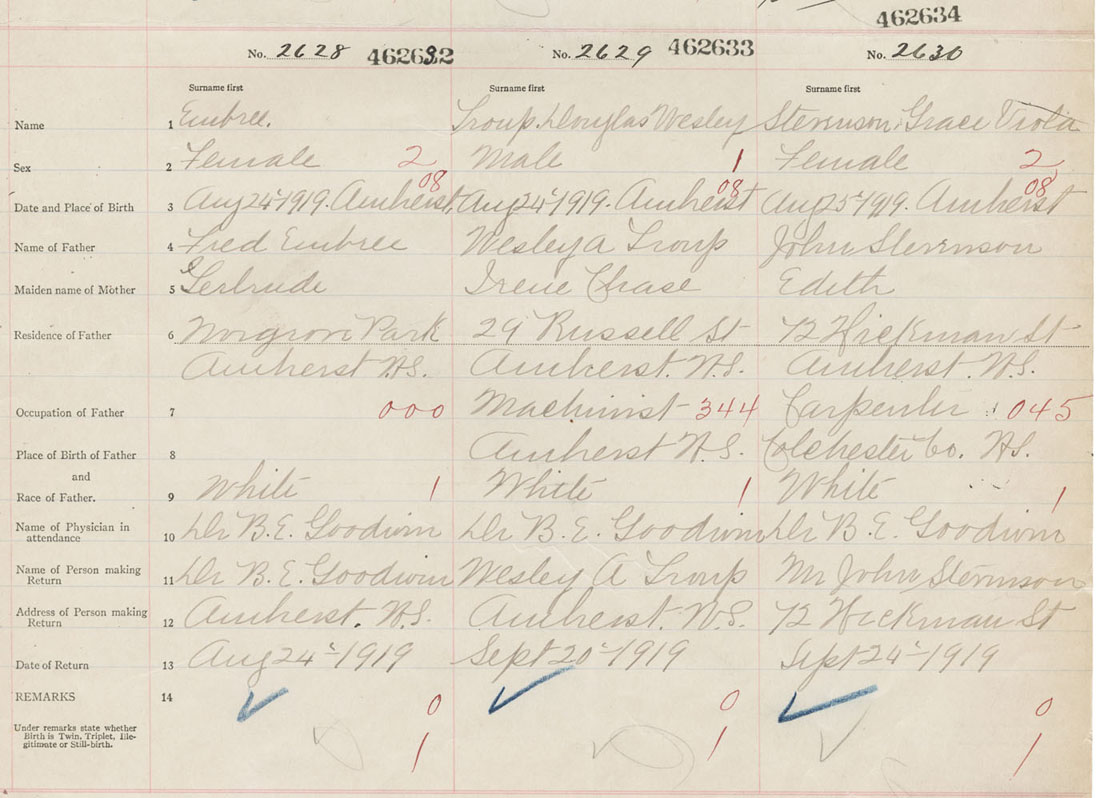 462634
No. 2628 462632 No. 2629 462633 No. 2630
Surname first Surname first Surname first
Name 1 Embree. Troup. Douglas Wesley Stevenson. Grace Viola
Sex 2 Female 2 Male 1 Female 2
08 08 08
Date and Place of Birth 3 Aug 24 1919. Amherst, Aug 24 1919. Amherst Aug 25 1919. Amherst
Name of Father 4 Fred Embree Wesley A Troup John Stevenson
Maiden name of Mother 5 Gertrude Irene Chase Edith
Residence of Father 6 Norgrove Park 29 Russell St 72 Hickman St
Amherst N.S. Amherst. N.S. Amherst. N.S.
Occupation of Father 7 000 Machinist 344 Carpenter 045
Place of Birth of Father 8 Amherst N.S. Colchester Co. N.S.
and
Race of Father. 9 White 1 White 1 White 1
Name of Physician in
attendance 10 Dr B.E. Goodwin Dr B.E. Goodwin Dr B.E. Goodwin
Name of Person making
Return 11 Dr B.E. Goodwin Wesley A Troup Mr John Stevenson
Address of Person making
Return 12 Amherst. N.S. Amherst. N.S. 72 Hickman St
Date of Return 13 Aug 24 - 1919 Sept 20 - 1919 Sept 24 - 1919
REMARKS 14 0 0 0
Under remarks state whether
Birth is Twin, Triplet, Ille-
gitimate or Still-birth. 1 1 1